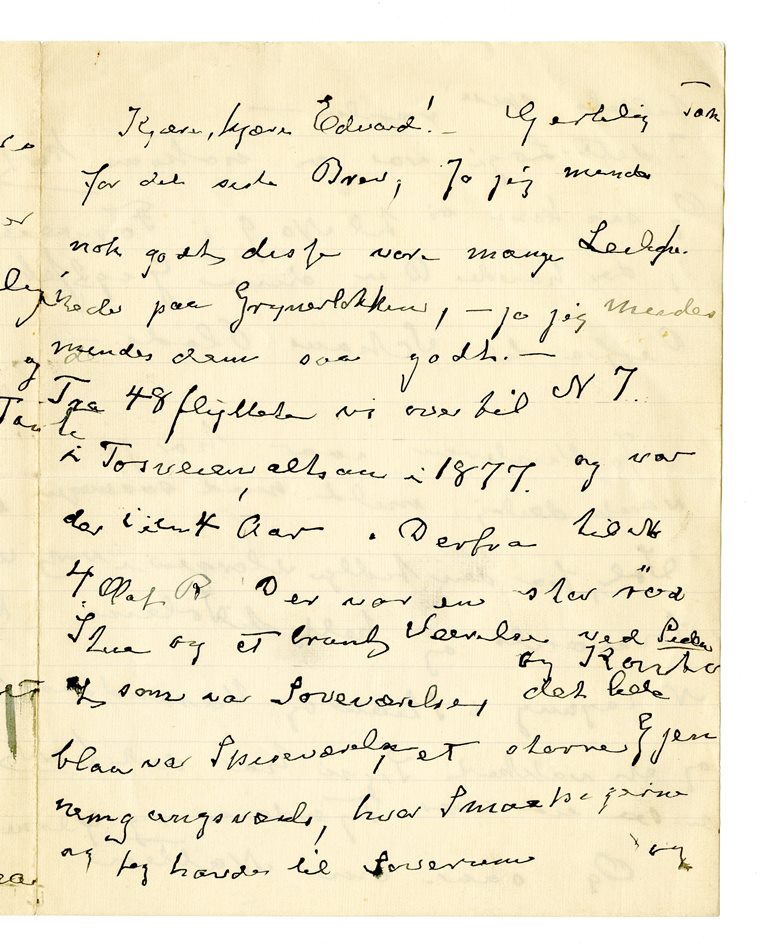 Kjære, kjære Edvard! – Hjertelig Tak
for det siste Brev, Ja jeg mindes
nok godt disse vore mange Leilig-
heder paa Grynerløkken, – ja jeg mindes
mindes dem saa godt. –
Fra 48 flyttede vi over til N 7.
i Fosveien, altsaa i 1877. og var
der i en 4 Aar. Derfra til N
4 Olaf R Der var en stor rød
Stue og et trangt Værelse ved Siden
og Kontor
som var Soveværelse, det lille
blaa var Spiseværelse, et større Gjen
nemgangsværelse, hvor Smaapigerne
og jeg havde til Soverum og